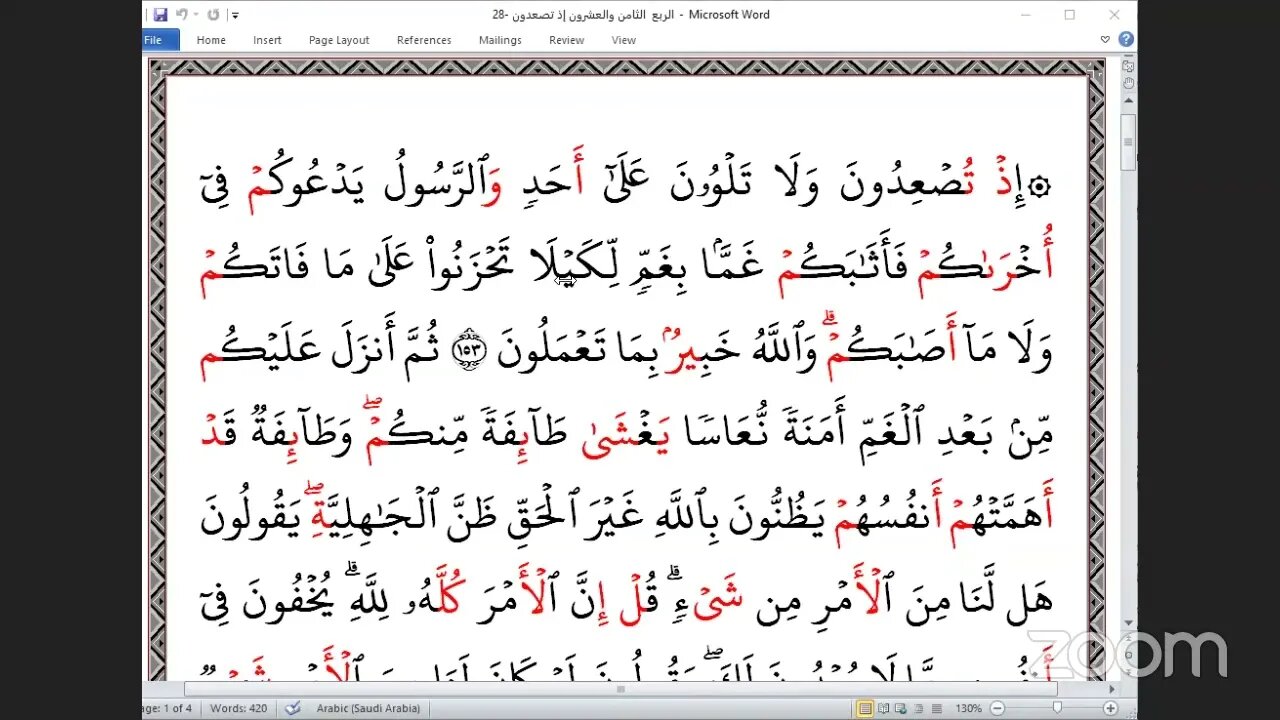 الربع الثامن والعشرون إذ تصعدون -28 - Microsoft Word
File Home Insert Page Layout References Mailings Review View
۞إِذۡ تُصۡعِدُونَ وَلَا تَلۡوُۥنَ عَلَىٰٓ أَحَدٖ وَٱلرَّسُولُ يَدۡعُوكُمۡ فِيٓ
أُخۡرَىٰكُمۡ فَأَثَٰبَكُمۡ غَمَّۢا بِغَمّٖ لِّكَيۡلَا تَحۡزَنُواْ عَلَىٰ مَا فَاتَكُمۡ
وَلَا مَآ أَصَٰبَكُمۡۗ وَٱللَّهُ خَبِيرُۢ بِمَا تَعۡمَلُونَ ١٥٣ ثُمَّ أَنزَلَ عَلَيۡكُم
مِّنۢ بَعۡدِ ٱلۡغَمِّ أَمَنَةٗ نُّعَاسٗا يَغۡشَىٰ طَآئِفَةٗ مِّنكُمۡۖ وَطَآئِفَةٞ قَدۡ
أَهَمَّتۡهُمۡ أَنفُسُهُمۡ يَظُنُّونَ بِٱللَّهِ غَيۡرَ ٱلۡحَقِّ ظَنَّ ٱلۡجَٰهِلِيَّةِۖ يَقُولُونَ
هَل لَّنَا مِنَ ٱلۡأَمۡرِ مِن شَيۡءٖۗ قُلۡ إِنَّ ٱلۡأَمۡرَ كُلَّهُۥ لِلَّهِۗ يُخۡفُونَ فِيٓ
zoom
age: 1 of 4 Words: 420 Arabic (Saudi Arabia) 130%